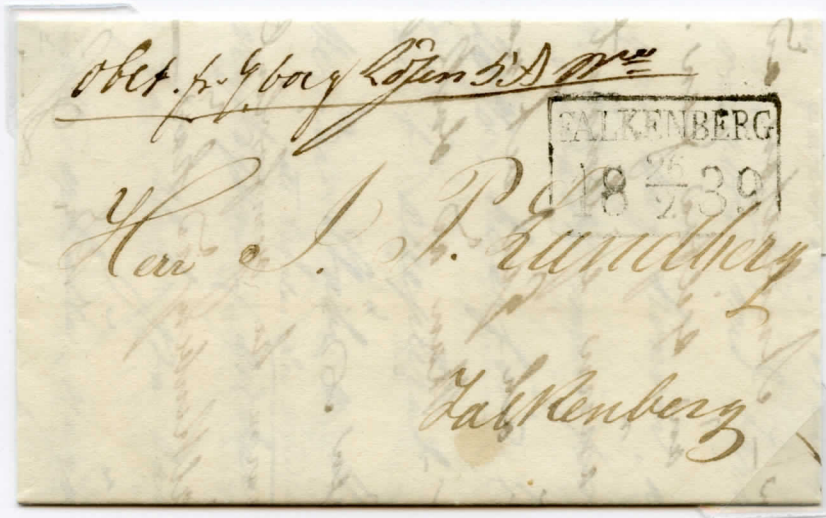 obet. fr. G,borg Lösen 5 s B
FALKENBERG
18 26/2 39
Herr J. P. Lundberg
Falkenberg